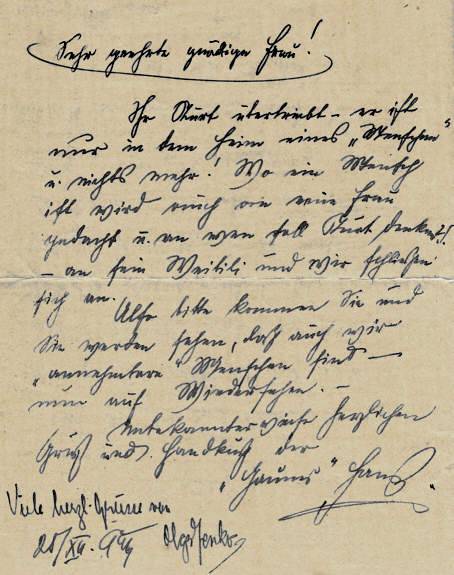 Sehr geehrte gnädige Frau!
Ihr Kurt übertreibt – er ist
nur in dem Heim eines „Menschen“
u. nichts mehr! Wo ein Mensch
ist wird auch an eine Frau
gedacht u. an wen soll Kurt denken?!
– an sein Weitili und wir schließen
sich an. Also bitte kommen Sie und
Sie werden sehen, daß auch wir
„annehmbare“ Menschen sind –
nun auf Wiedersehen. –
Unbekannterweise herzlichen
Gruß und Handkuß der
„Hans“
Viele herzl. Grüsse von
20/XII.